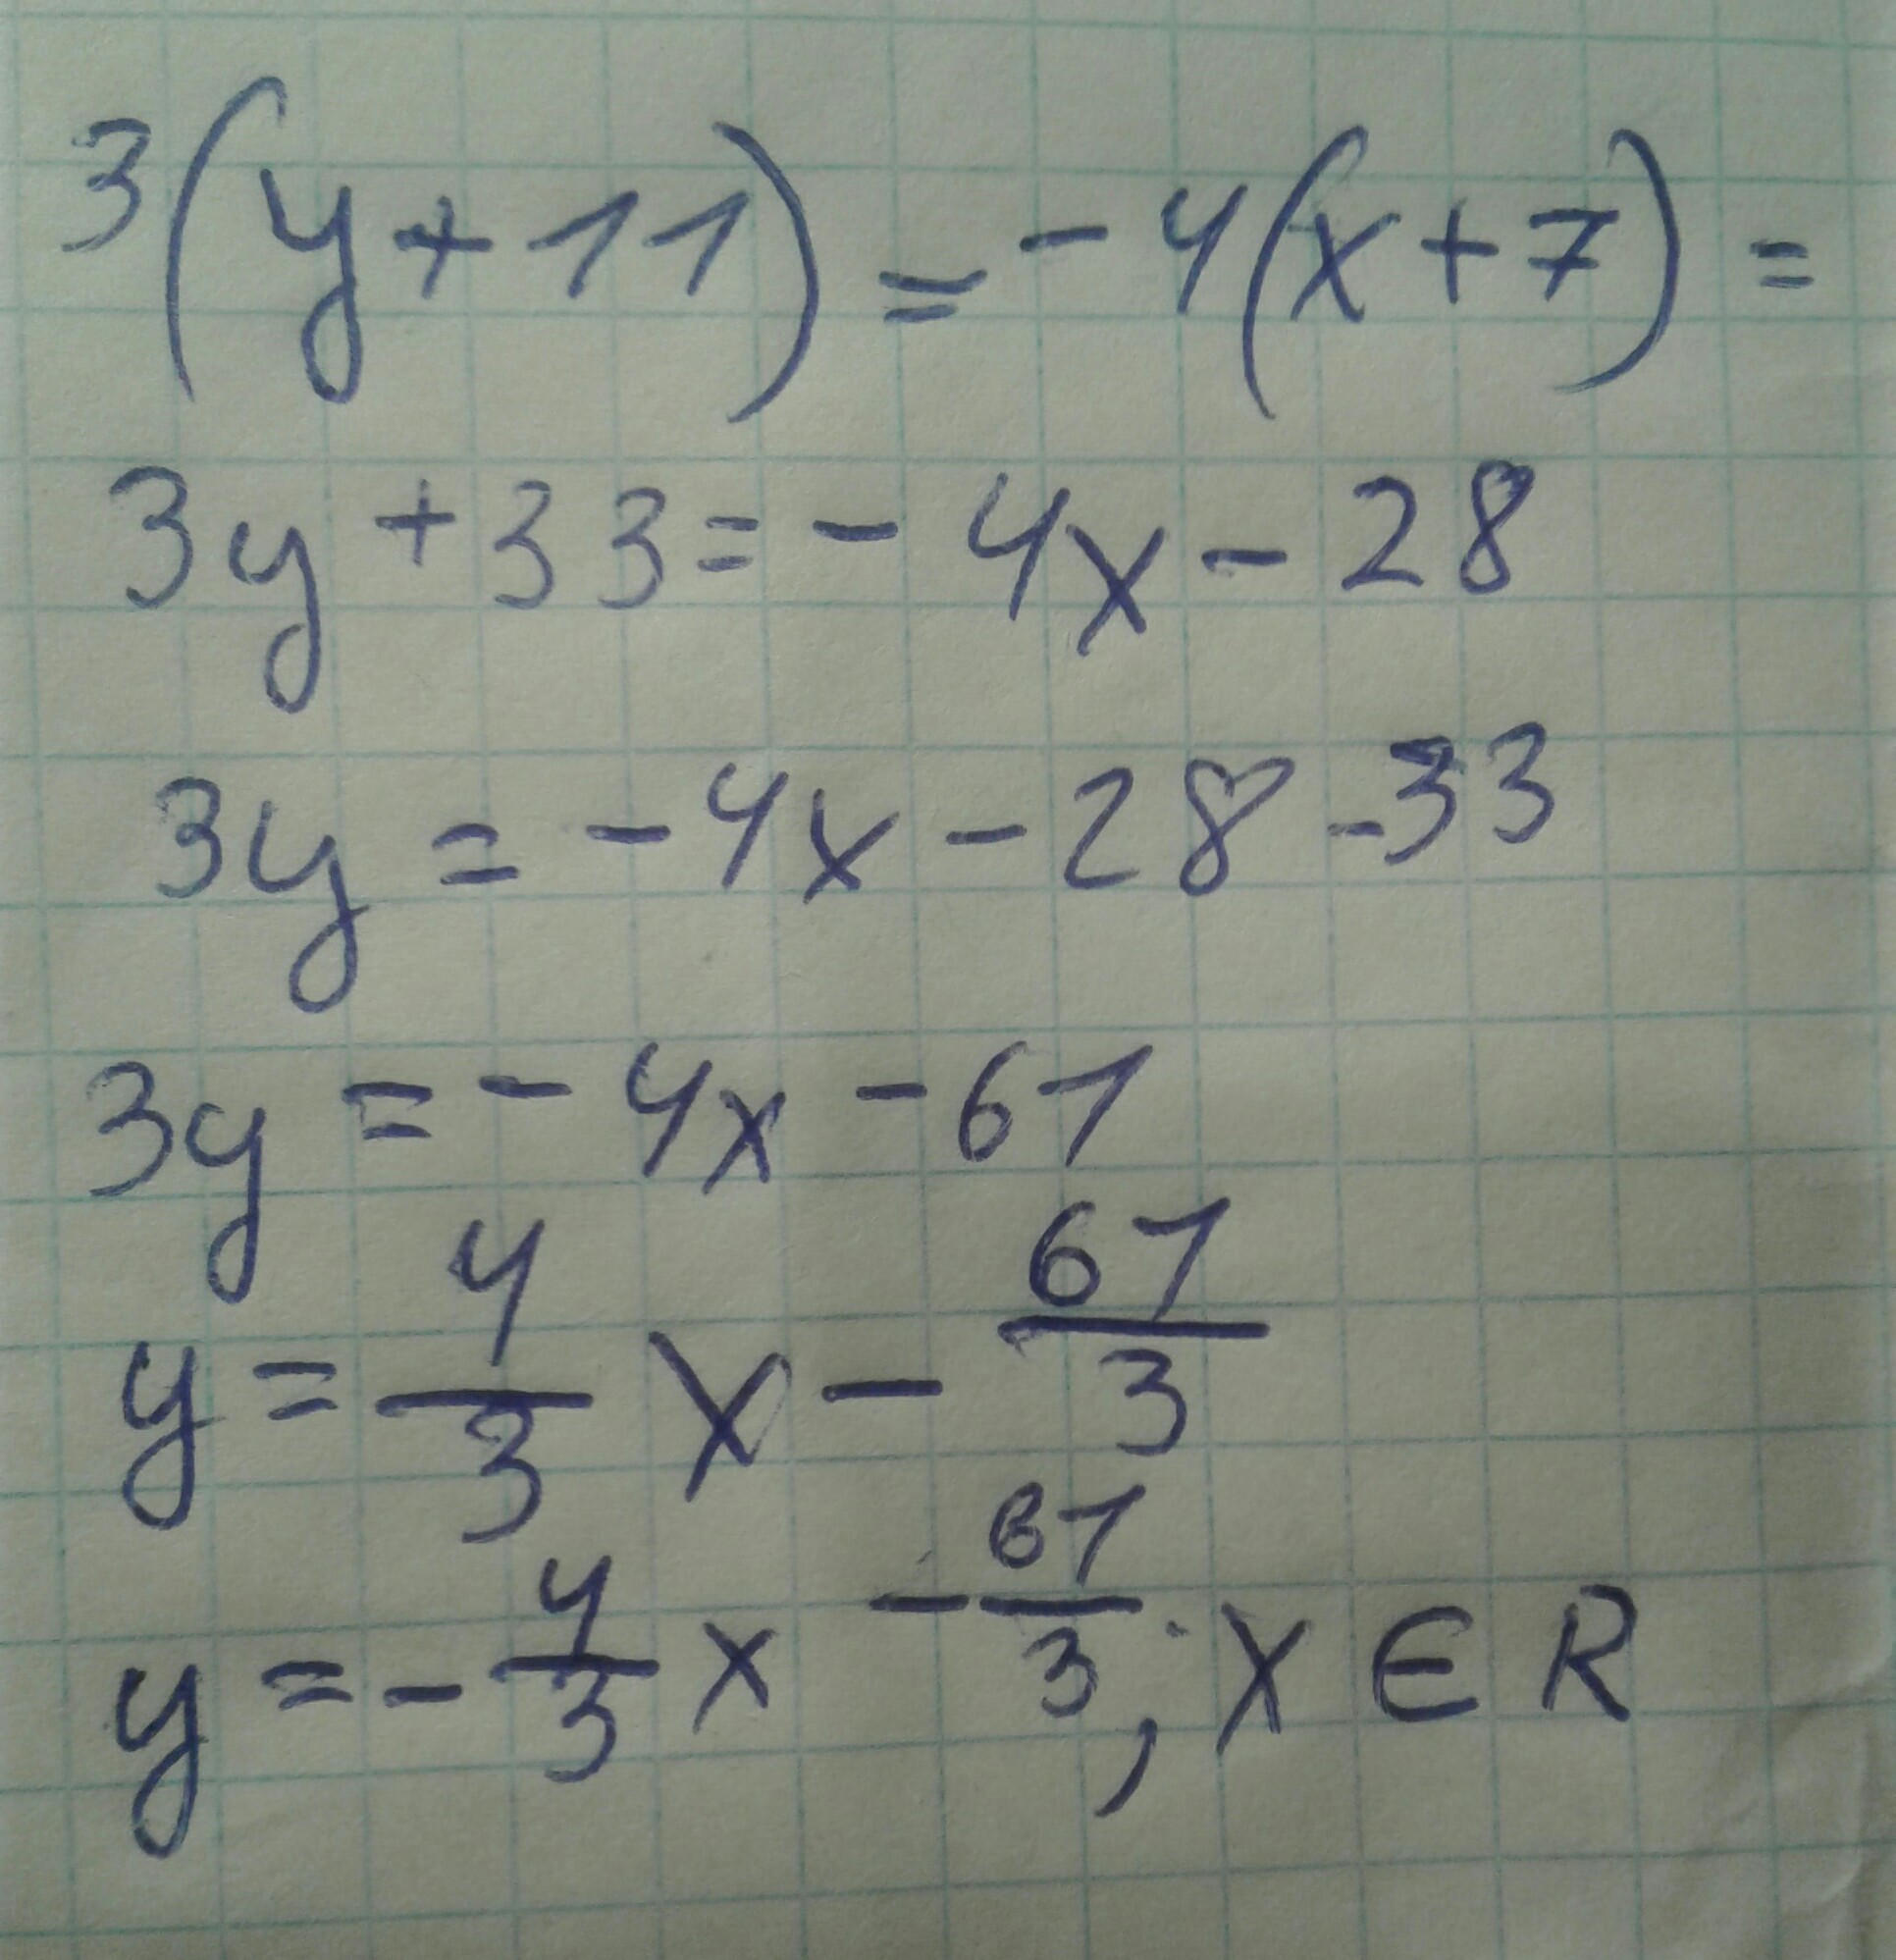 3(y+11)=-4(x+7)=
3y+33=-4x-28
3y=-4x-28-33
3y=-4x-61
y=4/3 x-61/3
y=-4/3 x -61/3; x ∈ R